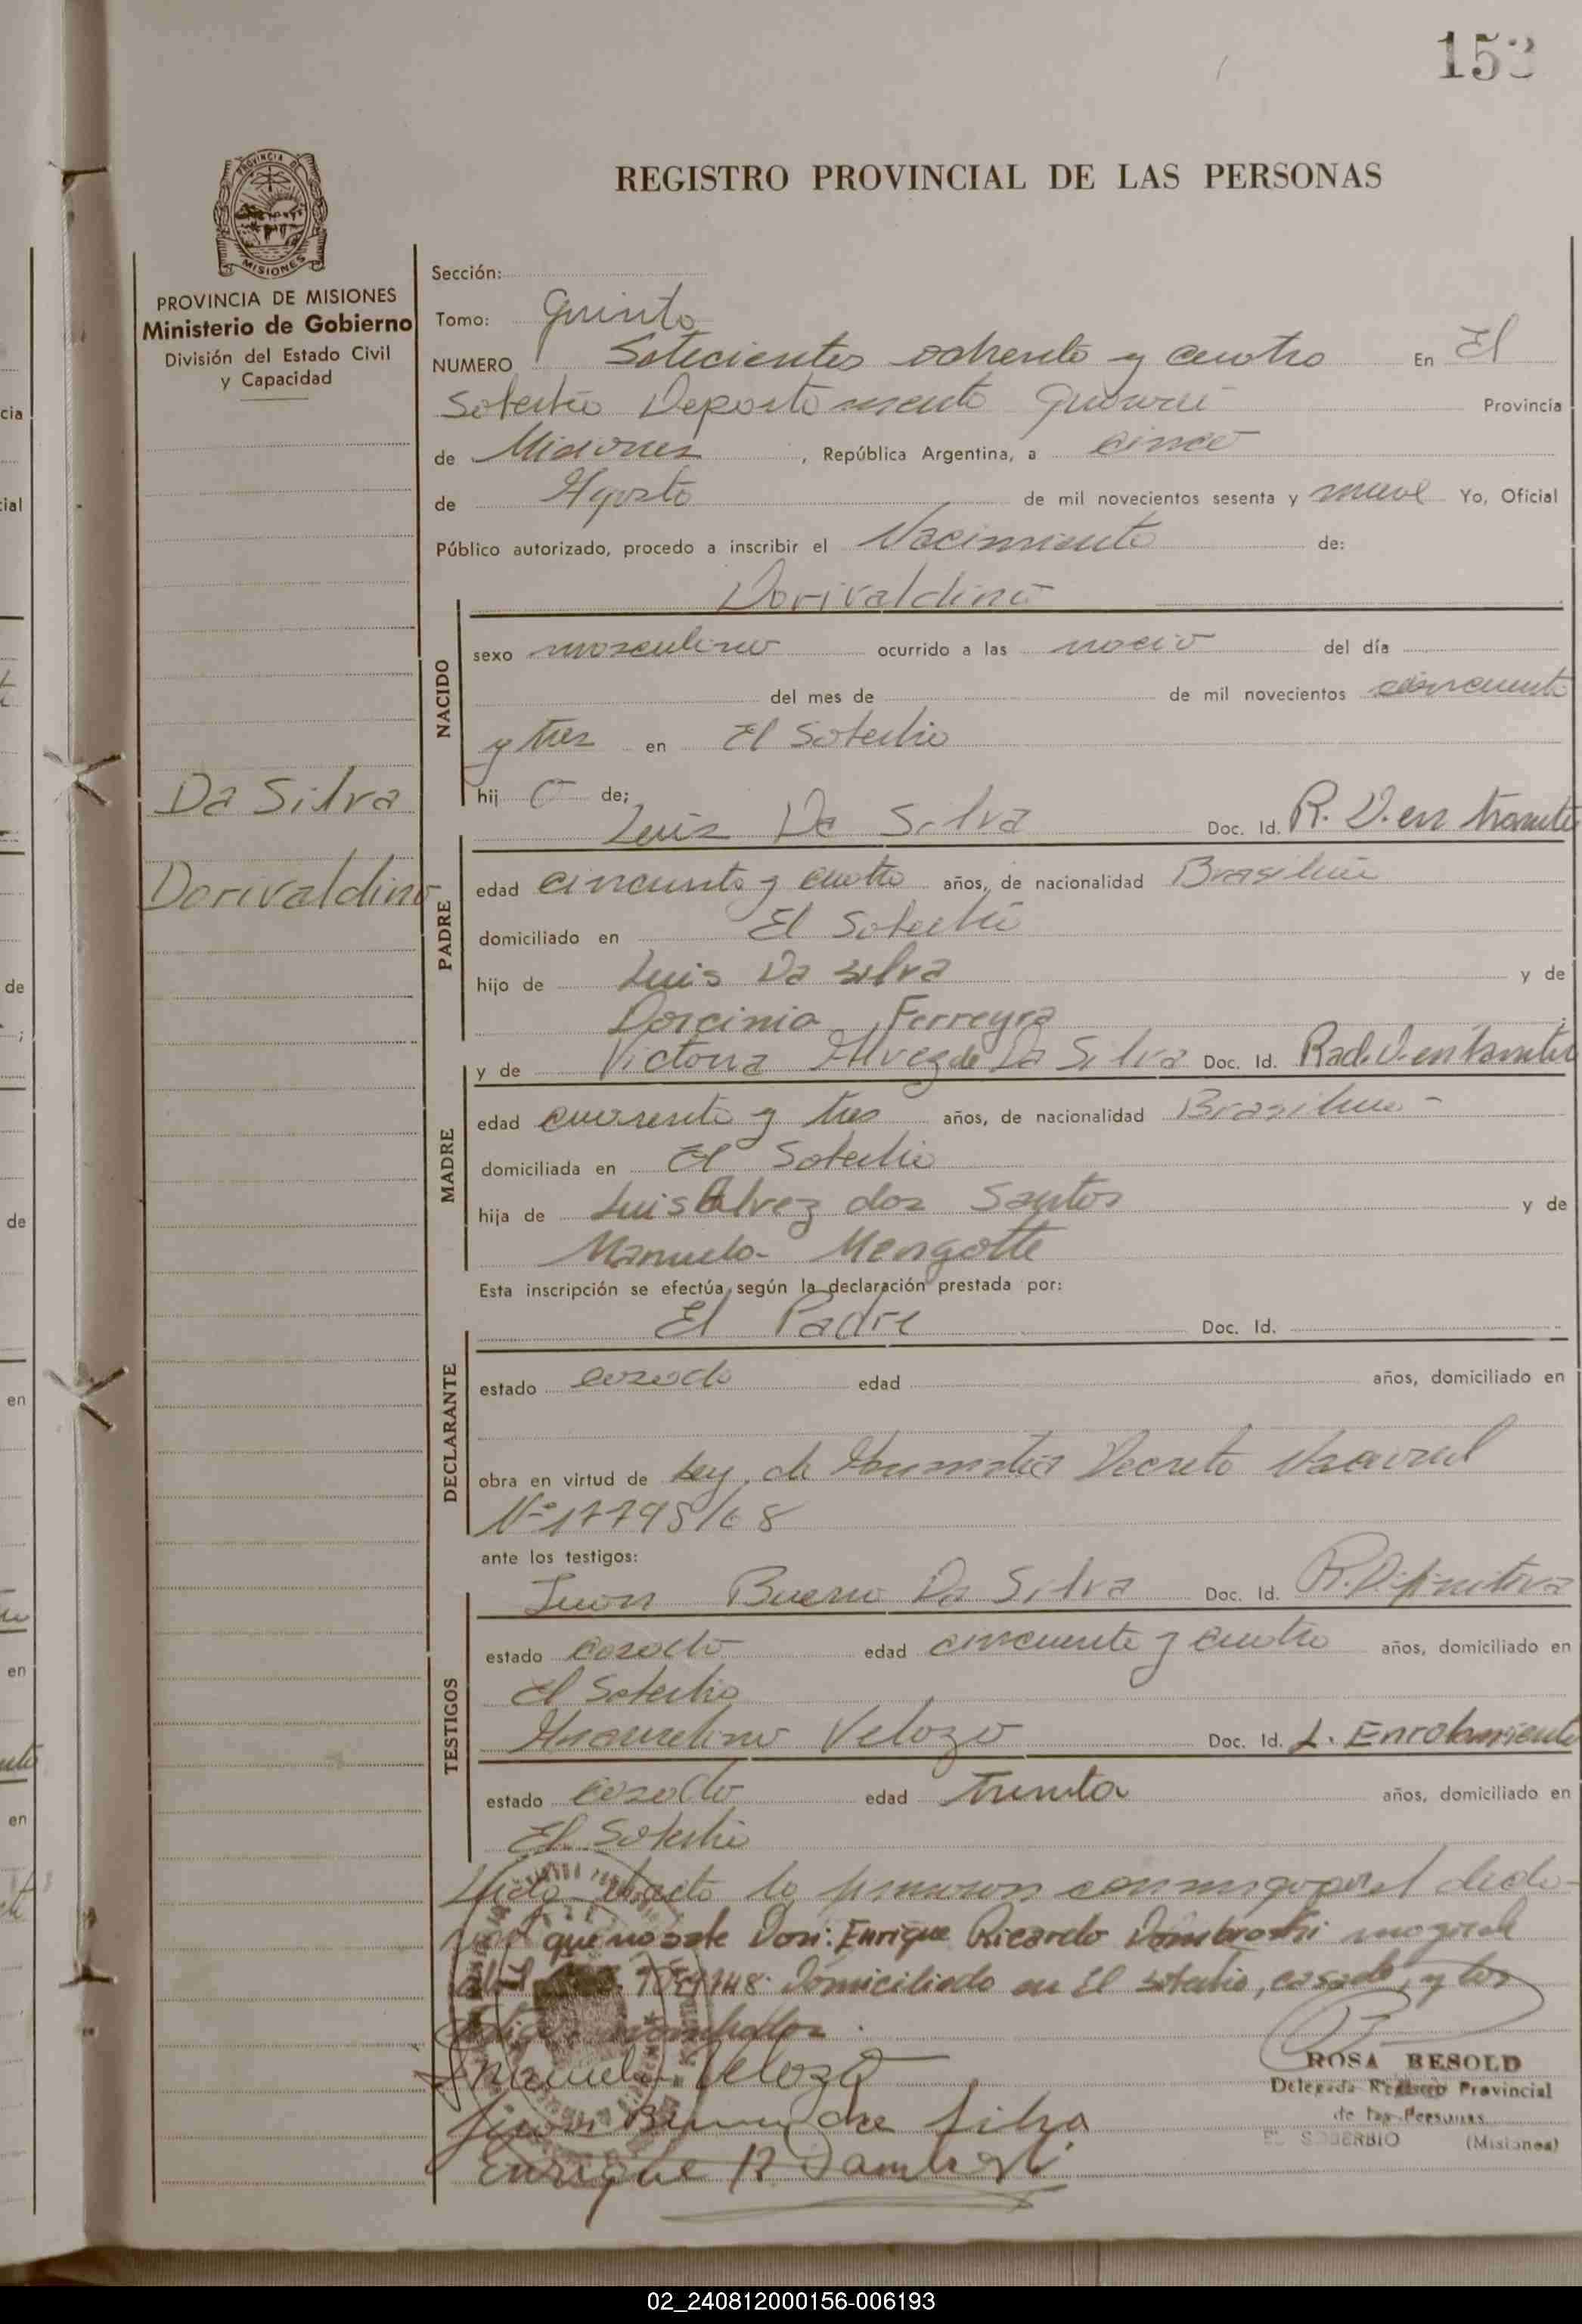 153
REGISTRO PROVINCIAL DE LAS PERSONAS
PROVINCIA DE
MISIONES
PROVINCIA DE MISIONES
Ministerio de Gobierno
División del Estado Civil
y Capacidad
Sección:
Tomo: Quinto
NUMERO Setecientos ochenta y cuatro En El
Soberbio Departamento Guaraní Provincia
de Misiones, República Argentina, a cinco
de Agosto de mil novecientos sesenta y nueve Yo, Oficial
Público autorizado, procedo a inscribir el Nacimiento de:
Dorivaldino
NACIDO
sexo masculino ocurrido a las nació del día
del mes de de mil novecientos cincuenta
y tres en El Soberbio
hij o de;
Da Silva
Dorivaldino
Luis Da Silva Doc. Id. R. D. en tramite
PADRE
edad cincuenta y cuatro años, de nacionalidad Brasileña
domiciliado en El Soberbio
hijo de Luis Da Silva y de
Dorcinia Ferreyra
y de Victoria Alvez de Da Silva Doc. Id. Rad. D. en tramite
MADRE
edad cuarenta y tres años, de nacionalidad Brasileña -
domiciliada en El Soberbio
hija de Luis Alvez dos Santos y de
Manuela Mengotte
Esta inscripción se efectúa según la declaración prestada por:
El Padre Doc. Id.
DECLARANTE
estado casado edad años, domiciliado en
obra en virtud de Ley de Decreto Nacional
Nº 17795/68
ante los testigos:
Juan Bueno Da Silva Doc. Id. R. Difinitiva
TESTIGOS
estado casado edad cincuenta y cuatro años, domiciliado en
El Soberbio
Velozo Doc. Id. L. Enrolamiento
estado casado edad Treinta años, domiciliado en
El Soberbio
Leida el acta la firmaron conmigo por el
que no sabe Don: Enrique Ricardo Dombroski
Domiciliado en El Soberbio, casado, y los
testigos nombrados.
Velozo
Juan Bueno da Silva
Enrique R Dombroski
ROSA BESOLD
Delegada Registro Provincial
de las Personas
EL SOBERBIO (Misiones)
02_240812000156-006193